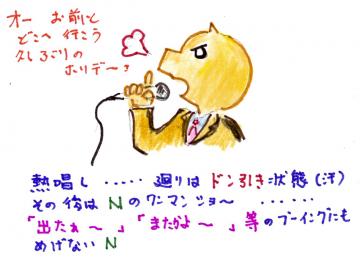 オー お前と
どこへ 行こう
久しぶりの
ホリデー♪
熱唱し ‥‥‥ 廻りは ドン引き状態(汗)
その後は Nのワンマンショー ‥‥‥
「出たぁ〜」「またかよ〜」等のブーイングにも
めげない N